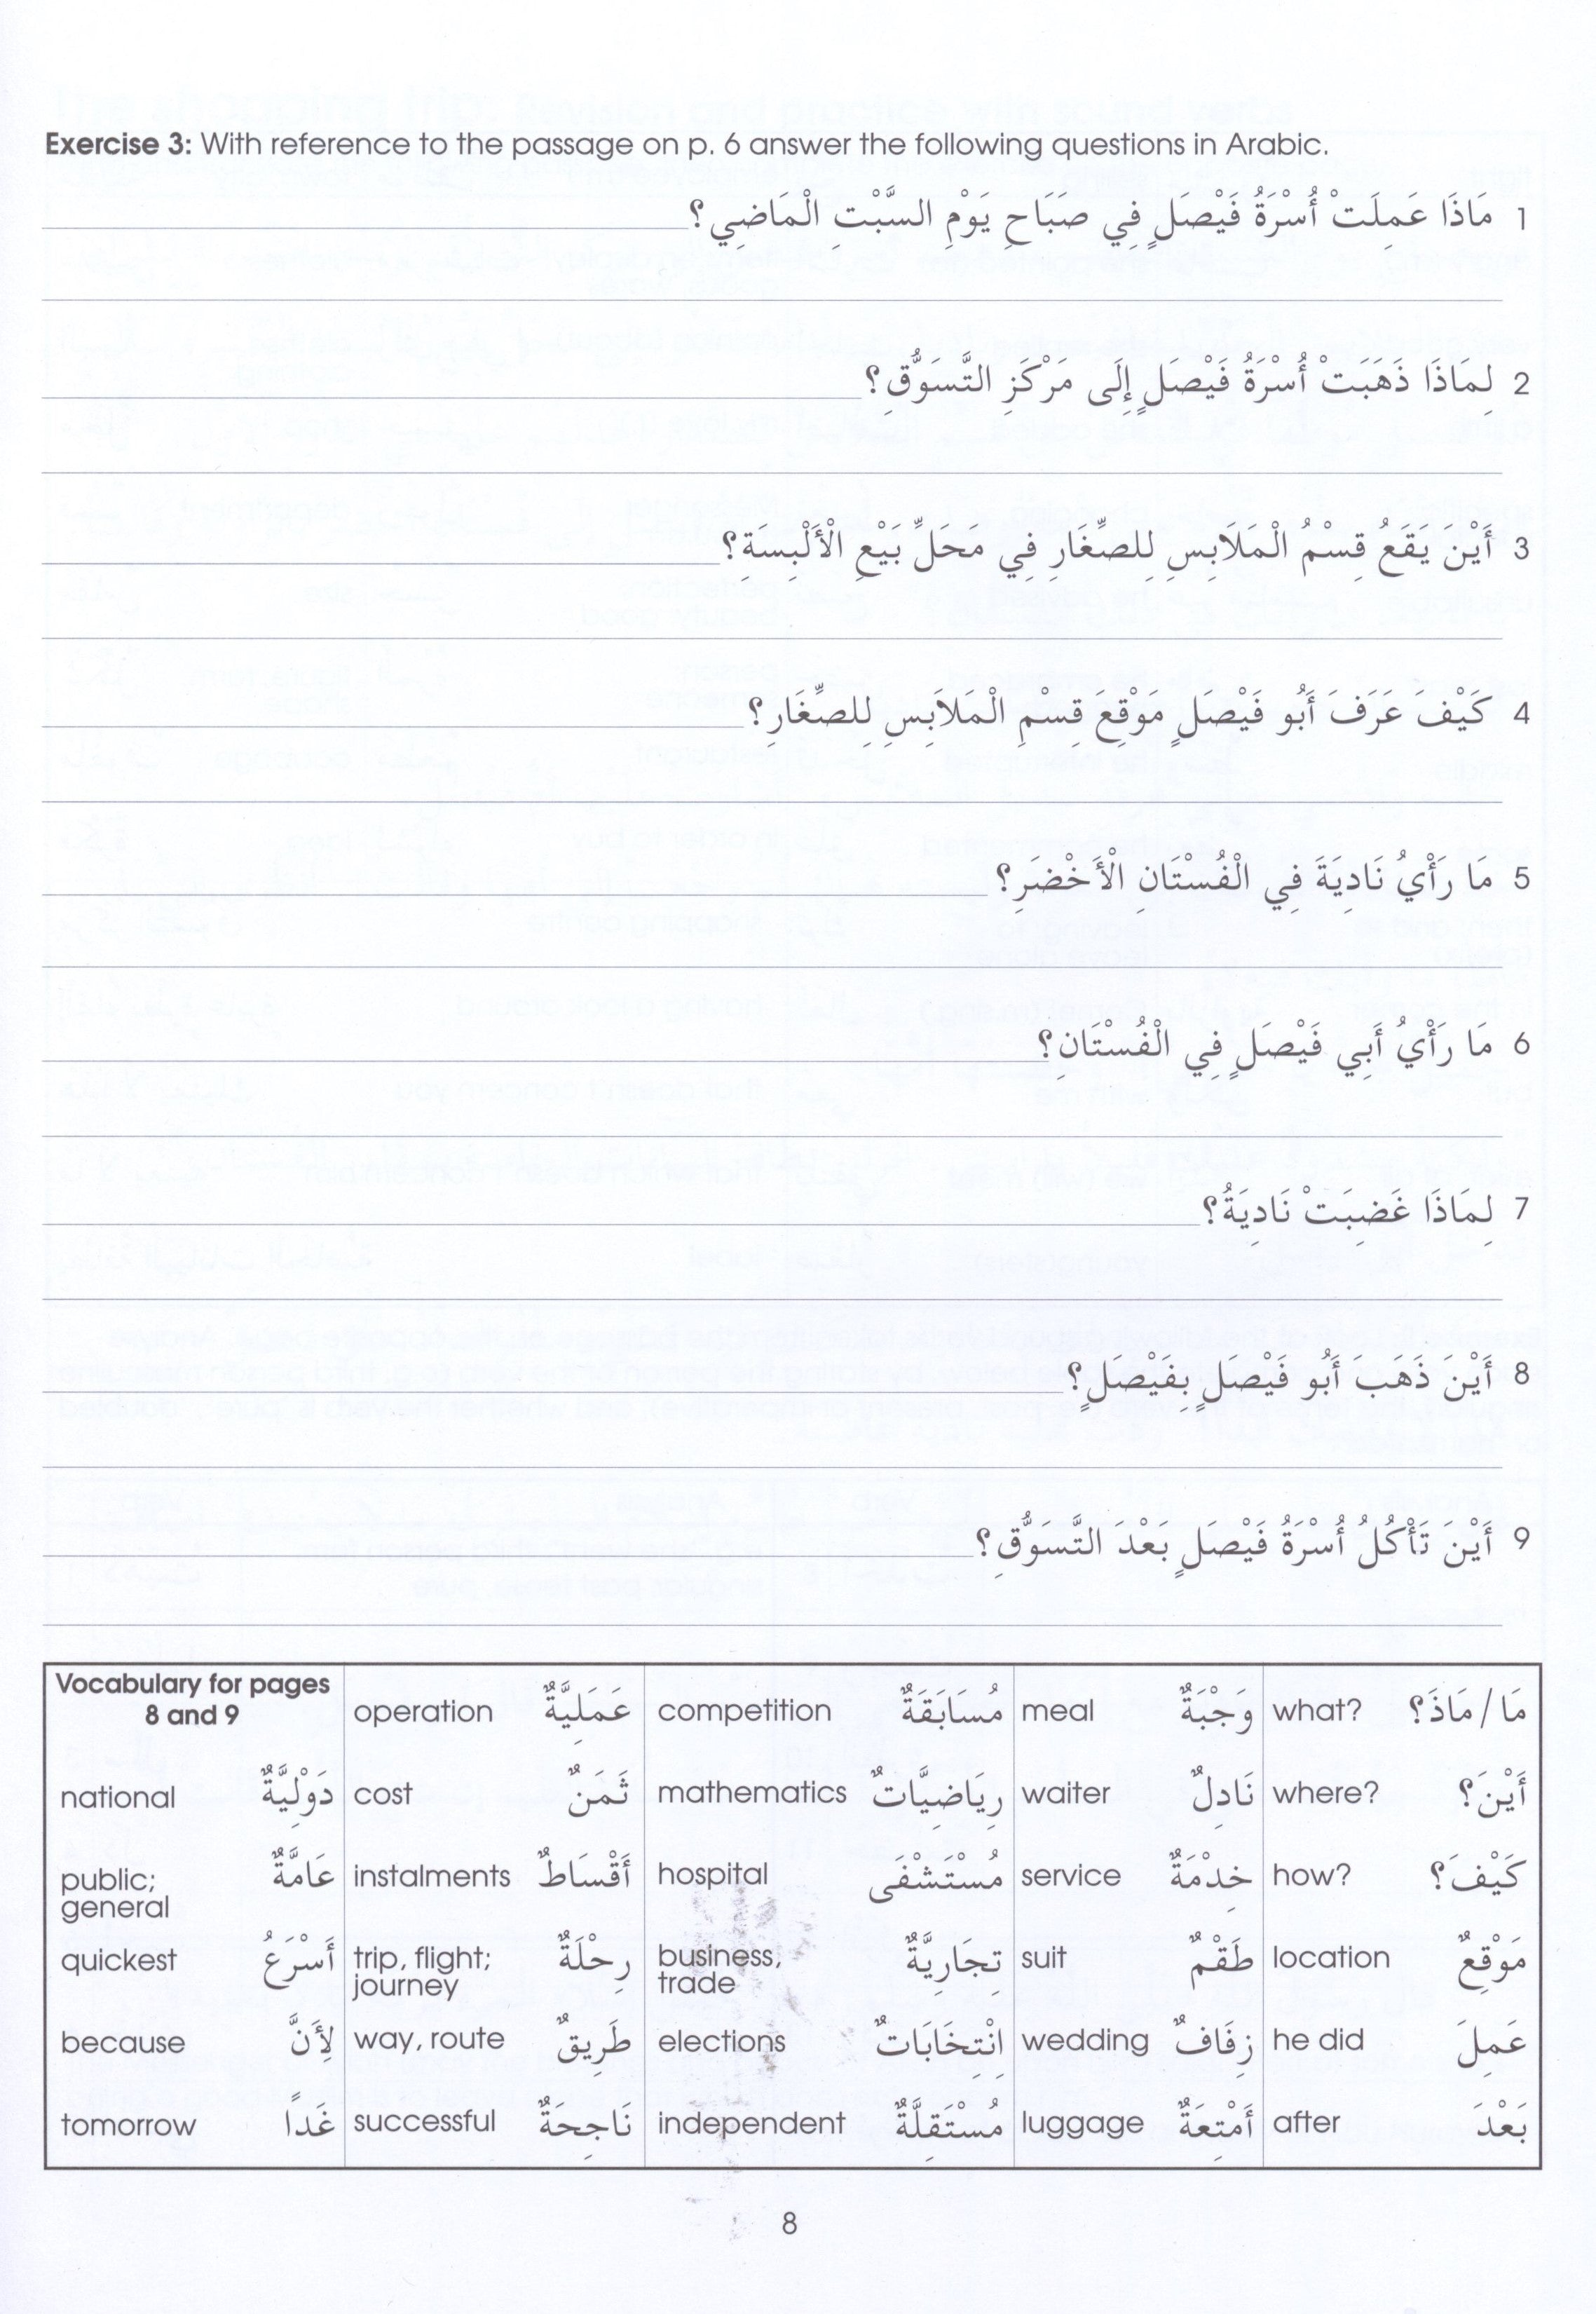 Exercise 3: With reference to the passage on p. 6 answer the following questions in Arabic.
1 مَاذَا عَمِلَتْ أُسْرَةُ فَيْصَلٍ فِي صَبَاحِ يَوْمِ السَّبْتِ الْمَاضِي؟
2 لِمَاذَا ذَهَبَتْ أُسْرَةُ فَيْصَلٍ إِلَى مَرْكَزِ التَّسَوُّقِ؟
3 أَيْنَ يَقَعُ قِسْمُ الْمَلَابِسِ لِلصِّغَارِ فِي مَحَلِّ بَيْعِ الْأَلْبِسَةِ؟
4 كَيْفَ عَرَفَ أَبُو فَيْصَلٍ مَوْقِعَ قِسْمِ الْمَلَابِسِ لِلصِّغَارِ؟
5 مَا رَأْيُ نَادِيَةَ فِي الْفُسْتَانِ الْأَخْضَرِ؟
6 مَا رَأْيُ أَبِي فَيْصَلٍ فِي الْفُسْتَانِ؟
7 لِمَاذَا غَضِبَتْ نَادِيَةُ؟
8 أَيْنَ ذَهَبَ أَبُو فَيْصَلٍ بِفَيْصَلٍ؟
9 أَيْنَ تَأْكُلُ أُسْرَةُ فَيْصَلٍ بَعْدَ التَّسَوُّقِ؟
Vocabulary for pages 8 and 9 operation عَمَلِيَّةٌ competition مُسَابَقَةٌ meal وَجْبَةٌ what? مَا/مَاذَ؟
national دَوْلِيَّةٌ cost ثَمَنٌ mathematics رِيَاضِيَّاتٌ waiter نَادِلٌ where? أَيْنَ؟
public; general عَامَّةٌ instalments أَقْسَاطٌ hospital مُسْتَشْفَى service خِدْمَةٌ how? كَيْفَ؟
quickest أَسْرَعُ trip, flight; journey رِحْلَةٌ business, trade تِجَارِيَّةٌ suit طَقْمٌ location مَوْقِعٌ
because لِأَنَّ way, route طَرِيقٌ elections اِنْتِخَابَاتٌ wedding زِفَافٌ he did عَمِلَ
tomorrow غَداً successful نَاجِحَةٌ independent مُسْتَقِلَّةٌ luggage أَمْتِعَةٌ after بَعْدَ
8